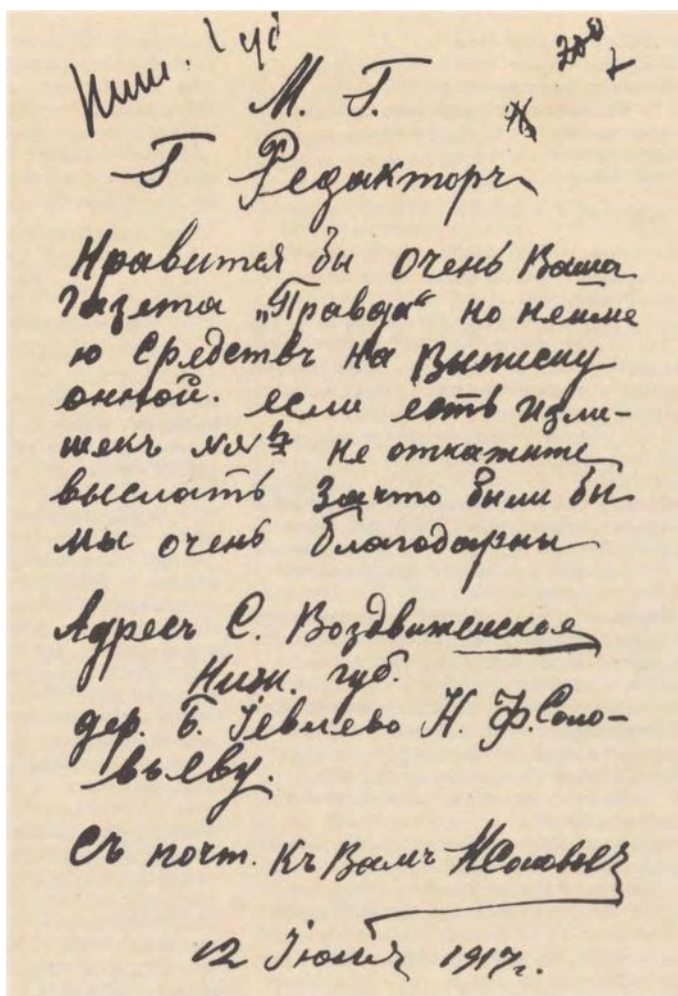 Ниж. Губ
М. Г.
Г Редакторъ
Нравится бы очень Ваша
газета „Правда“ но неиме
ю средствъ на выписку
онной. если есть изли-
шекъ №№ не откажите
выслать Зачто были бы
мы очень благодарны
Адресъ С. Воздвиженское
Ниж. губ.
дер. Б. Іевлево Н. Ф. Соло-
вьеву.
Съ почт. Къ Вамъ НСоловьев
12 Іюня 1917г.